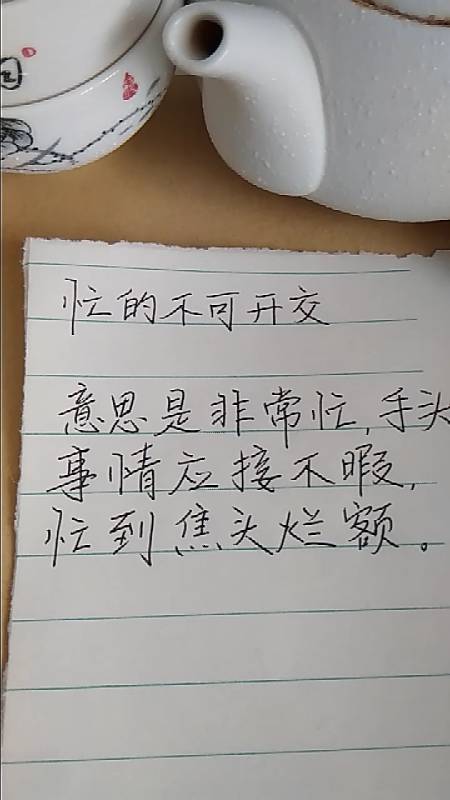 忙的不可开交
意思是非常忙,手头
事情应接不暇,
忙到焦头烂额。